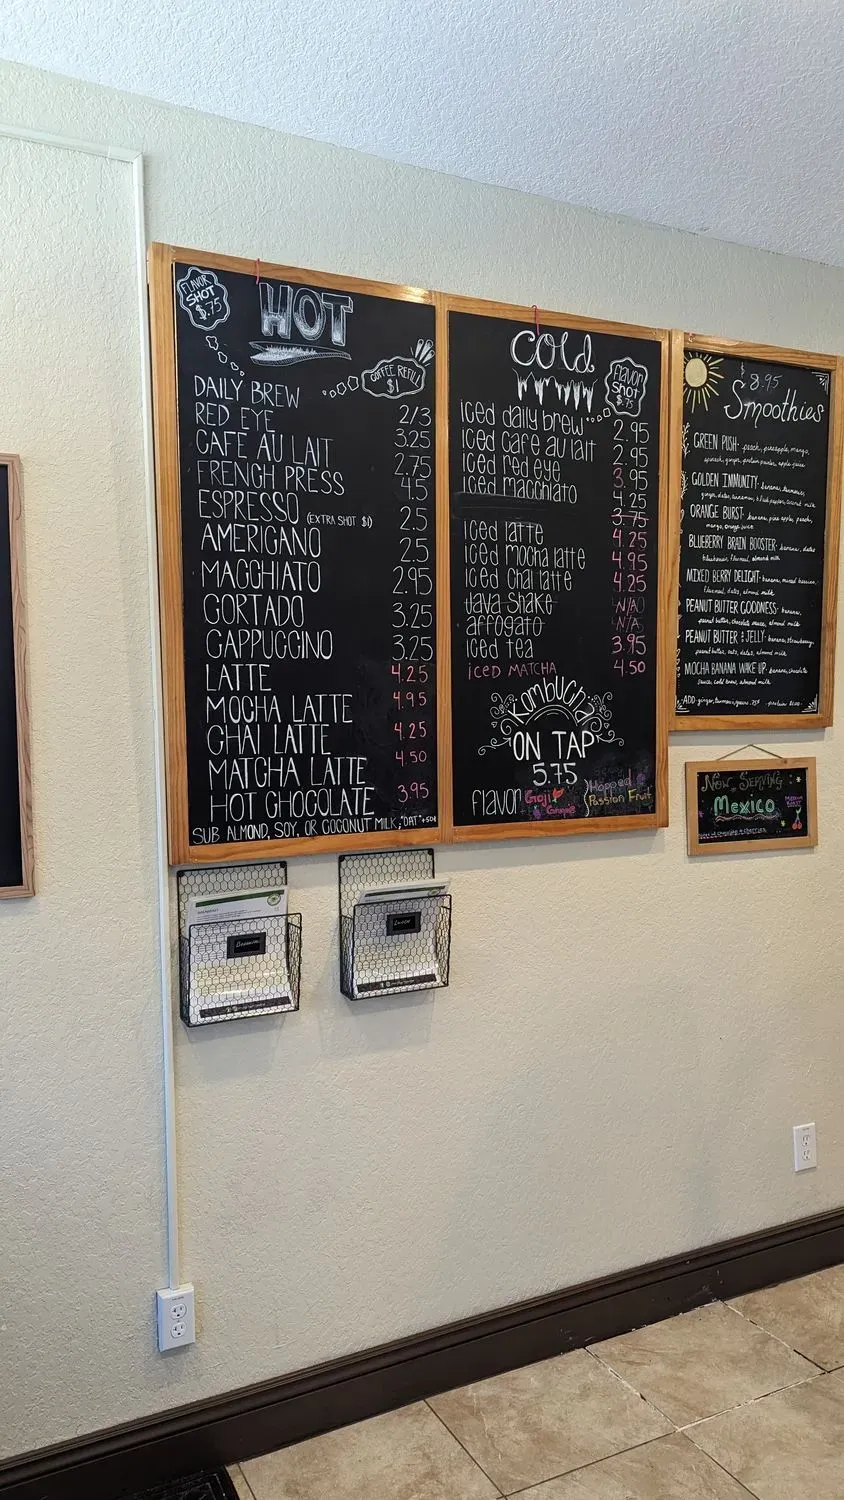 FLAVOR SHOT $.75
HOT
COFFEE REFILL $1
DAILY BREW 2/3
RED EYE 3.25
CAFE AU LAIT 2.75
FRENCH PRESS 4.5
ESPRESSO (EXTRA SHOT $1) 2.5
AMERICANO 2.5
MACCHIATO 2.95
CORTADO 3.25
CAPPUCCINO 3.25
LATTE 4.25
MOCHA LATTE 4.95
CHAI LATTE 4.25
MATCHA LATTE 4.50
HOT CHOCOLATE 3.95
SUB ALMOND, SOY, OR COCONUT MILK, "OAT" +50¢
Cold
Flavor Shot $.75
iced daily brew 2.95
iced cafe au lait 2.95
iced red eye 3.95
iced macchiato 4.25
3.75
iced latte 4.25
iced mocha latte 4.95
iced chai latte 4.25
Java Shake N/A
affogato N/A
iced tea 3.95
iced MATCHA 4.50
Kombucha
ON TAP
5.75
flavor Goji Grape Hopped Passion Fruit
8.95
Smoothies
GREEN PUSH- peach, pineapple, mango,
spinach, ginger, protein powder, apple juice
GOLDEN IMMUNITY- banana, turmeric,
ginger, dates, cinnamon, black pepper, coconut milk
ORANGE BURST- banana, pine apple, peach,
mango, orange juice
BLUEBERRY BRAIN BOOSTER- banana, dates
blueberries, flaxseed, almond milk
MIXED BERRY DELIGHT- banana, mixed berries,
flaxseed, dates, almond milk
PEANUT BUTTER GOODNESS- banana,
peanut butter, chocolate sauce, almond milk
PEANUT BUTTER & JELLY- banana, strawberry,
peanut butter, oats, dates, almond milk
MOCHA BANANA WAKE UP- banana, chocolate
sauce, cold brew, almond milk
ADD- ginger, turmeric, greens .75¢ - protein $1.00-
Now Serving
Mexico
Medium Roast